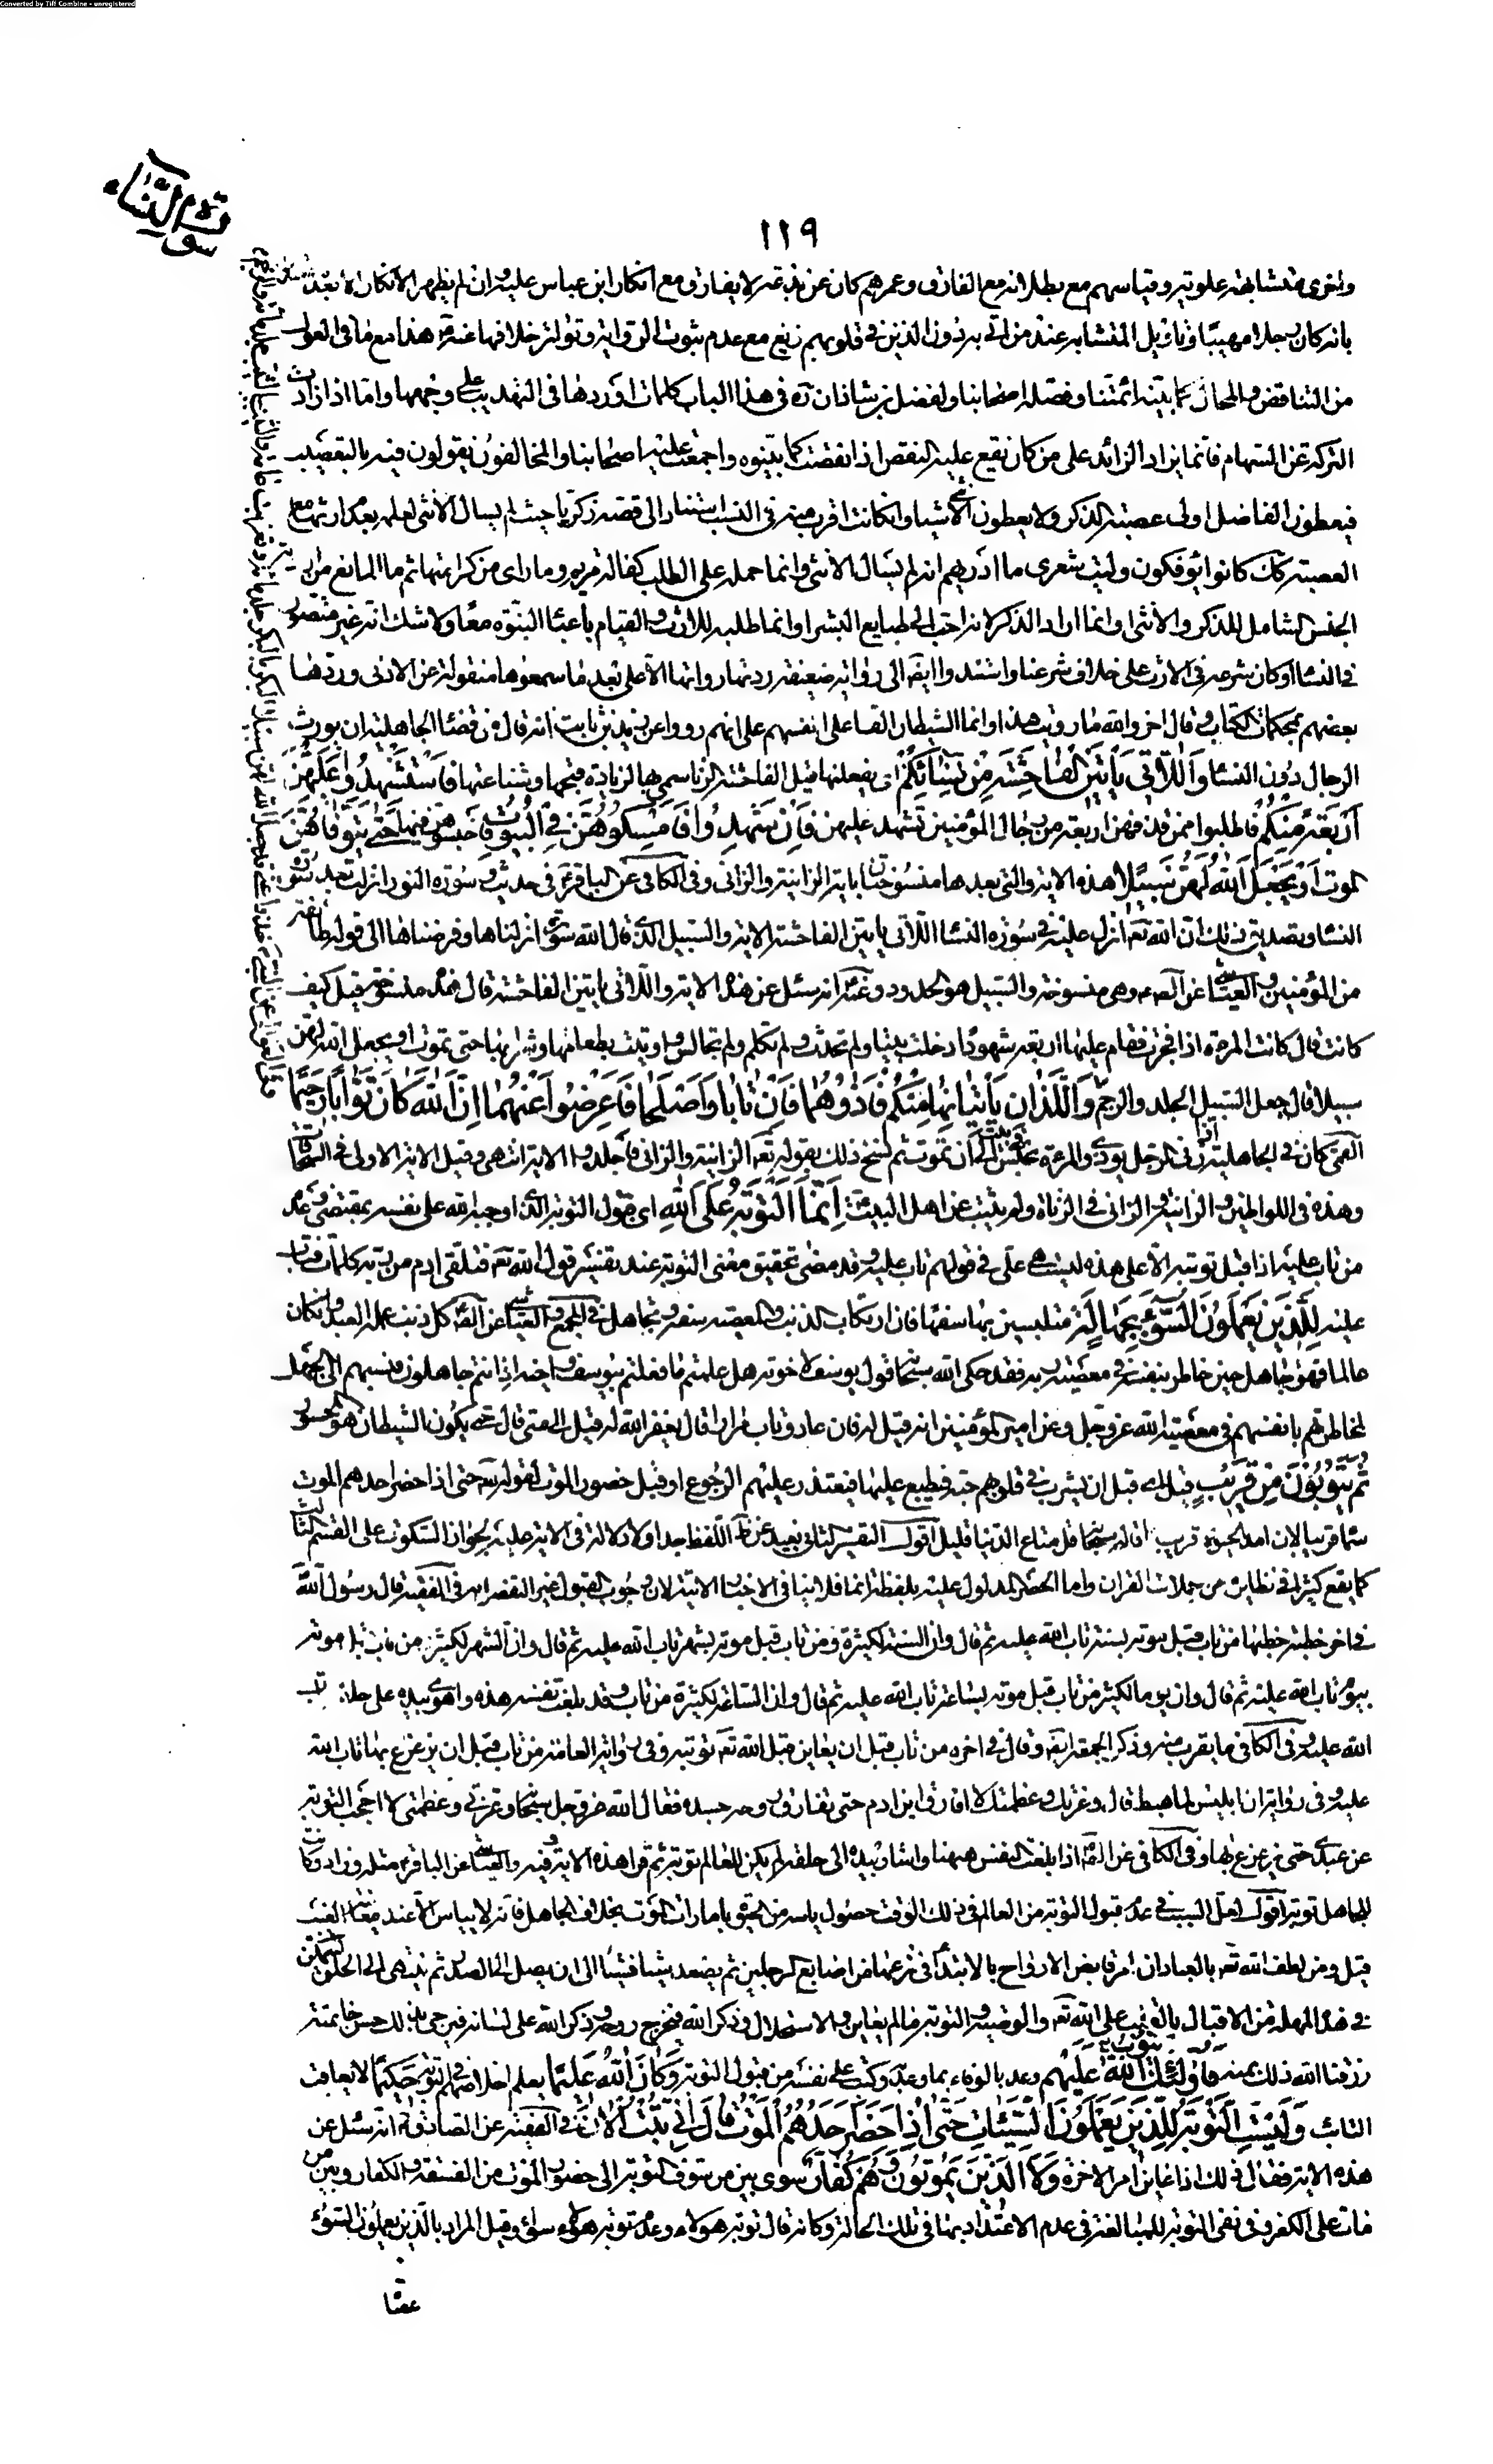 Converted by Tiff Combine - unregistered
سورة النساء
١١٩
واخرى متشابهة علوية وقياسهم مع بطلانه مع الفارق وعمرهم كان عن بدعته لا يفارق ومع انكار ابن عباس عليه وان لم يظهر الانكار الا بعده
بانه كان رجلا مهيبا وتاويل المتشابه عند من اتى به دون الذين في قلوبهم زيغ مع عدم ثبوت الرواية وتواتر خلافها عنه هذا مع ما في العول
من التناقض والمحال كما بينه ائمتنا وفصله اصحابنا ولفضل بن شاذان ره في هذا الباب كلمات اوردها في التهذيب على وجهها واما اذا زادت
التركة عن السهام فانما يزاد الزائد على من كان يقع عليه النقص اذا نقصت كما بينوه واجمعت عليه اصحابنا والمخالفون يقولون فيه بالتعصيب
فيعطون الفاضل اولى عصبته الذكر ولا يعطون الانثى شيئا وان كانت اقرب منه في النسب استنادا الى قصة زكريا حيث لم يسال الانثى لعلمه بعدم ارثها مع
العصبة كذلك كانوا يؤفكون وليت شعري ما ادريهم انه لم يسال الانثى وانما حمله على الطلب كفالة مريم وما راى من كرامتها ثم ما المانع من
الجنس الشامل للذكر والانثى او انما اراد الذكر لانه احب الى طبايع البشر او انما طلبه للارث والقيام باعباء النبوة معا ولا شك انه غير متصور
في النساء او كان شرعه في الارث على خلاف شرعنا واستندوا ايضا الى رواية ضعيفة ردتها رواتها الاعلى بعد ما سمعوها منقولة عن الادنى وردها
بعضهم بمحكمات الكتاب وقال اخر والله ما رويت هذا وانما الشيطان القاه على السنتهم على انهم رووا عن زيد بن ثابت انه قال من قضاء الجاهلية ان يورث
الرجال دون النساء وَاللّاتي يَأْتينَ الْفاحِشَةَ مِنْ نِسائِكُمْ اى يفعلنها قيل الفاحشة الزنا سمي بها لزيادة قبحها وشناعتها فَاسْتَشْهِدُوا عَلَيْهِنَّ
أَرْبَعَةً مِنْكُمْ فاطلبوا ممن قذفهن اربعة من رجال المؤمنين تشهد عليهن فَإِنْ شَهِدُوا فَأَمْسِكُوهُنَّ فِي الْبُيُوتِ فاحبسوهن فيها حَتّى يَتَوَفّاهُنَّ
الموت أَوْ يَجْعَلَ اللهُ لَهُنَّ سَبيلاً هذه الاية والتى بعدها منسوختان باية الزانية والزاني وفى الكافى عن الباقر ع في حديث وسورة النور انزلت بعد سورة
النساء وتصديق ذلك ان الله تعالى انزل عليه في سورة النساء اللاتي ياتين الفاحشة الاية والسبيل الذى قال الله سورة انزلناها وفرضناها الى قوله طائفة
من المؤمنين والعياشى عن الصادق ع هى منسوخة والسبيل هو الحدود وعنه انه سئل عن هذه الاية واللاتى ياتين الفاحشة قال هذه منسوخة قيل كيف
كانت قال كانت المرءة اذا فجرت فقام عليها اربعة شهود ادخلت بيتا ولم تحدث ولم تكلم ولم تجالس واوتيت بطعامها وشرابها حتى تموت او يجعل الله لهن
سبيلا قال جعل السبيل الجلد والرجم وَاللَّذانِ يَأْتِيانِها مِنْكُمْ فَآذُوهُما فَإِنْ تابا وَأَصْلَحا فَأَعْرِضُوا عَنْهُما اِنَّ اللهَ كانَ تَوّاباً رَحيماً
القمى كان فى الجاهلية اذا زنى الرجل يؤذى والمرءة تحبس فى بيت الى ان تموت ثم نسخ ذلك بقوله تعالى الزانية والزاني فاجلدوا الاية انتهى وقيل الاية الاولى فى السحاقات
وهذه فى اللواطين والزانية والزانى فى الزناة ولم يثبت عن اهل البيت اِنَّما التَّوْبَةُ عَلَى اللهِ اى قبول التوبة الذى اوجبه الله على نفسه بمقتضى وعده
من تاب عليه اذا قبل توبته الا على هذه ليست هى على فى قولهم تاب عليه وقد مضى تحقيق معنى التوبة عند تفسير قول الله تعالى فتلقى ادم من ربه كلمات فتاب
عليه لِلَّذينَ يَعْمَلُونَ السُّوءَ بِجَهالَةٍ متلبسين بها سفها فان ارتكاب الذنب والمعصية سفه وتجاهل فى المجمع والعياشى عن الصادق كل ذنب عمله العبد وان كان
عالما فهو جاهل حين خاطر بنفسه فى معصية ربه فقد حكى الله سبحانه قول يوسف لاخوته هل علمتم ما فعلتم بيوسف واخيه اذ انتم جاهلون فنسبهم الى الجهل
لمخاطرتهم بانفسهم فى معصية الله عز وجل وعن امير المؤمنين انه قيل له فان عاد وتاب مرارا قال يغفر الله له قيل الى متى قال حتى يكون الشيطان هو المحسور
ثُمَّ يَتُوبُونَ مِنْ قَريبٍ قيل اى قبل ان يشرب فى قلوبهم حبه فيطبع عليها فيتعذر عليهم الرجوع او قبل حضور الموت لقوله تعالى حتى اذا حضر احدهم الموت
سماه قريبا لان امد الحيوة قريب كما قال سبحانه قل متاع الدنيا قليل اقول التفسير الثانى بعيد عن ظاهر اللفظ جدا ولا دلالة فى الاية عليه لجواز السكوت على القسم الثالث
كما يقع كثيرا فى نظاير من مجملات القران واما الحصر المدلول عليه بلفظة انما فلا ينافى الاخبار الاتية لان وجوب القبول غير التفضل به فى الفقيه قال رسول الله
فى اخر خطبة خطبها من تاب قبل موته بسنة تاب الله عليه ثم قال وان السنة لكثيرة ومن تاب قبل موته بشهر تاب الله عليه ثم قال وان الشهر لكثير من تاب قبل موته
بيوم تاب الله عليه ثم قال وان يوما لكثير من تاب قبل موته بساعة تاب الله عليه ثم قال وان الساعة لكثيرة من تاب وقد بلغت نفسه هذه واهوى بيده الى حلقه تاب
الله عليه وفى الكافى ما يقرب منه وذكر الجمعة ايضا وقال فى اخره من تاب قبل ان يعاين قبل الله تعالى توبته وفى رواية العامة من تاب قبل ان يغرغر بها تاب الله
عليه وفى رواية ان ابليس لما هبط قال وعزتك وعظمتك لا افارق ابن ادم حتى تفارق روحه جسده فقال الله عز وجل سبحانه وعزتى وعظمتى لا احجب التوبة
عن عبدى حتى يغرغر بها وفى الكافى عن الصادق اذا بلغت النفس ههنا واشار بيده الى حلقه لم يكن للعالم توبة ثم قرا هذه الاية وفيه والعياشى عن الباقر ع مثله وزاد وكانت
للجاهل توبة اقول لعل السبب فى عدم قبول التوبة من العالم فى ذلك الوقت حصول ياسه من الحيوة بامارات الموت بخلاف الجاهل فانه لا يياس الا عند معاينة الغيب
قيل ومن لطف الله تعالى بالعباد ان امر قابض الارواح بالابتداء فى نزعها من اصابع الرجلين ثم يصعد شيئا فشيئا الى ان يصل الى الصدر ثم ينتهى الى الحلق ليتمكن
فى هذه المهلة من الاقبال بالقلب على الله تعالى والوصية والتوبة ما لم يعاين والاستحلال وذكر الله فيخرج روحه وذكر الله على لسانه فيرجى بذلك حسن خاتمته
رزقنا الله ذلك بمنه فَأُولئِكَ يَتُوبُ اللهُ عَلَيْهِمْ وعد بالوفاء بما وعد وكتب على نفسه من قبول التوبة وَكانَ اللهُ عَليماً يعلم اخلاصهم فى التوبة حَكيماً لا يعاقب
التائب وَلَيْسَتِ التَّوْبَةُ لِلَّذينَ يَعْمَلُونَ السَّيِّئاتِ حَتّى اِذا حَضَرَ أَحَدَهُمُ الْمَوْتُ قالَ اِنّي تُبْتُ الْآنَ فى الفقيه عن الصادق ع انه سئل عن
هذه الاية فقال ذلك اذا عاين امر الاخرة وَلَا الَّذينَ يَمُوتُونَ وَهُمْ كُفّارٌ سوى بين من سوف التوبة الى حضور الموت من الفسقة والكفار وبين من
مات على الكفر فى نفى التوبة للمبالغة فى عدم الاعتداد بها فى تلك الحالة وكانه قال توبة هؤلاء وعدم توبة هؤلاء سواء وقيل المراد بالذين يعملون السوء
عصاة